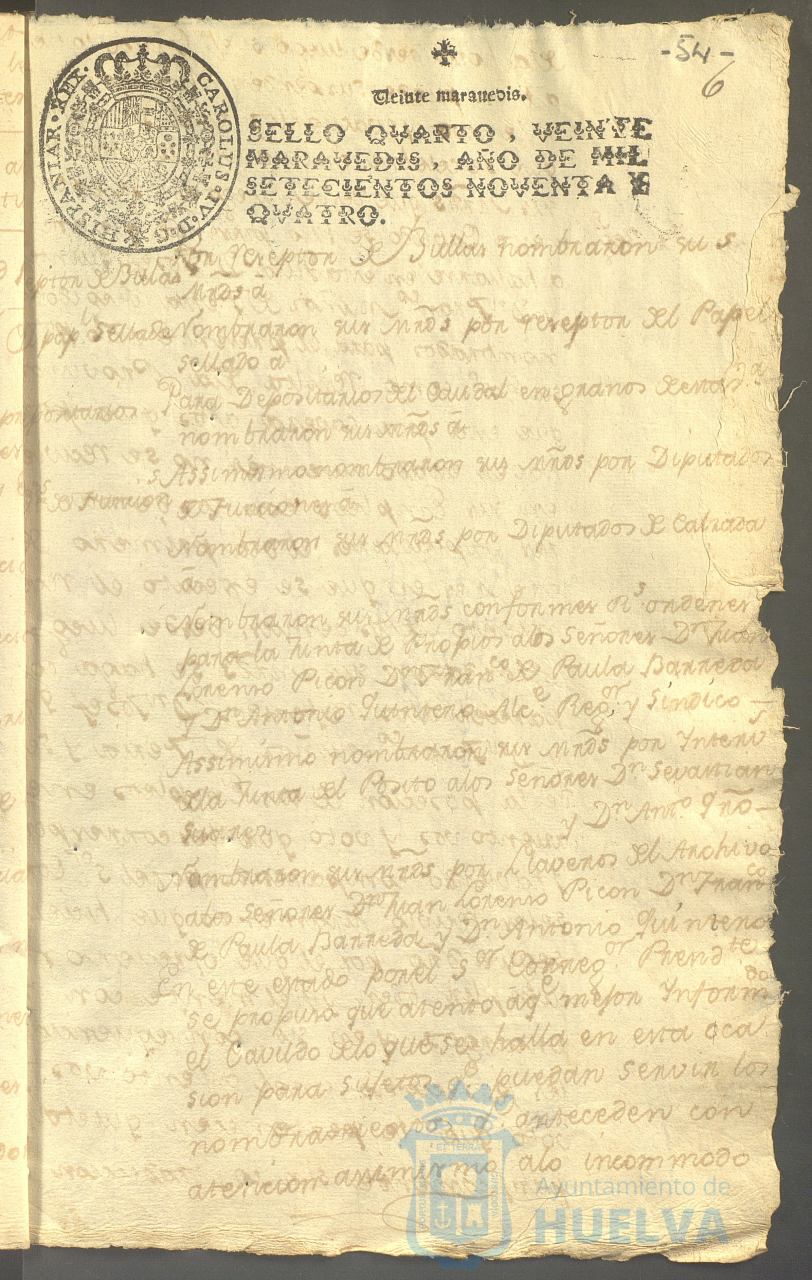 -54-
6
HISPANIAR·REX· CAROLUS·IV·D·G·
Veinte maravedis.
SELLO QVARTO, VEINTE
MARAVEDIS, AÑO DE MIL
SETECIENTOS NOVENTA Y
QVATRO.
Por Receptor de Bullas nombraron sus
eptor de Bulas
Mrds á
papl Sellado
Nombraron sus Mrds por receptor del Papel
sellado á
Para Depositarios del Caudal en granos
positarios
nombraron sus mrds á
Assimismo nombraron sus Mrds por Diputados
de Funcion s
de Funciones á
Nombraron sus Mrds por Diputados de Calzada
á
Nombraron sus Mrds conformes Rs ordenes
para la Junta de Propios alos Señores Dn Juan
Lorenzo Picon Dn Franco de Paula Barreda
y Dn Antonio Quintero Alce Regor y Sindico
Assimismo nombraron sus Mrds por
dela Junta del Posito alos Señores Dn Sevastian
Suarez y Dn Anto Qño
Nombraron sus Mrds por Llaveros del Archivo
alos Señores Dn Juan Lorenzo Picon Dn Franco
de Paula Barreda y Dn Antonio Quintero
En este estado por el Sor Corregor Prendte
se propuso que atento aqe mejor Informdo
el Cavildo delo que se halla en esta oca
sion para Sujetos qe puedan servir los
nombramientos qe anteceden con
atencion assimismo alo incommodo
EL TERRA
Ayuntamiento de
HUELVA